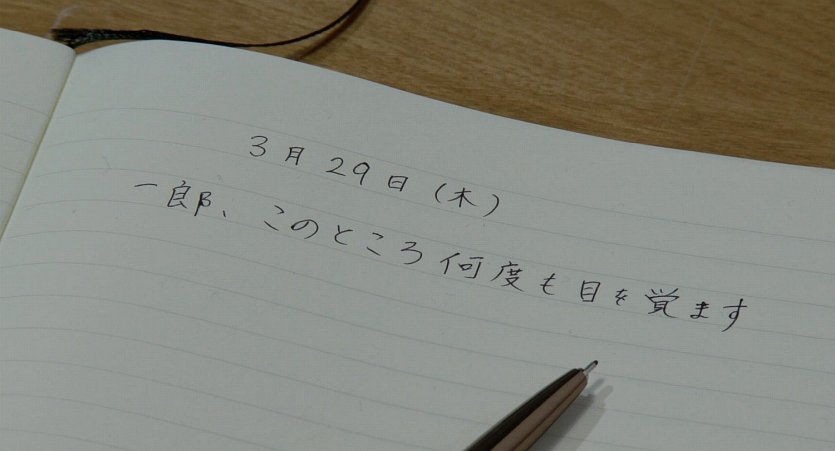 3月29日(木)
一郎、このところ何度も目を覚ます